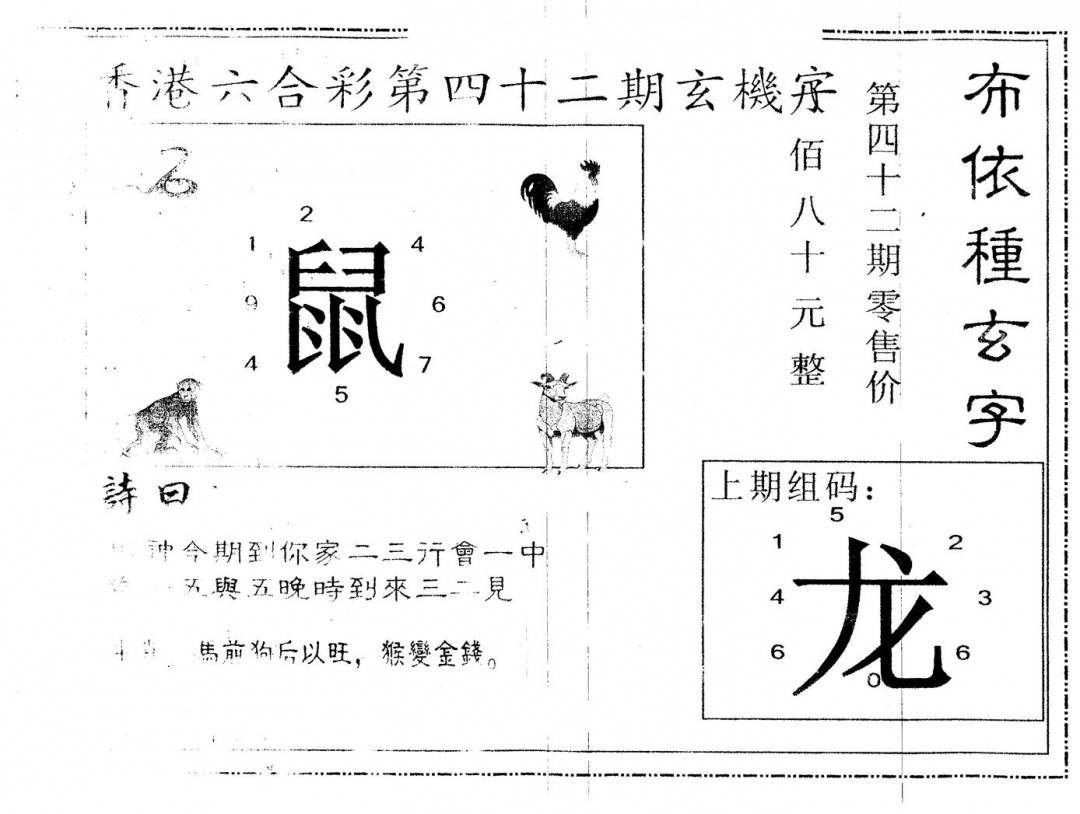 香港六合彩第四十二期玄機字
布依種玄字
第四十二期零售价
佰八十元整
2
1
4
9
鼠
6
4
7
5
詩曰
神今期到你家二三行會一中
五與五晚時到來三二見
馬前狗后以旺，猴變金錢。
上期组码：
5
1
2
4
龙
3
6
6
0